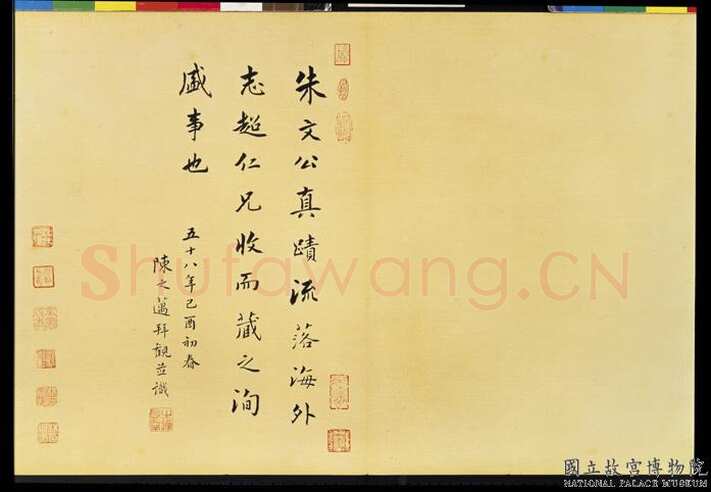 朱文公真蹟流落海外
志超仁兄收而藏之洵
盛事也
五十八年己酉初春
陳之邁拜觀並識
Shufawang.CN
國立故宮博物院
NATIONAL PALACE MUSEUM